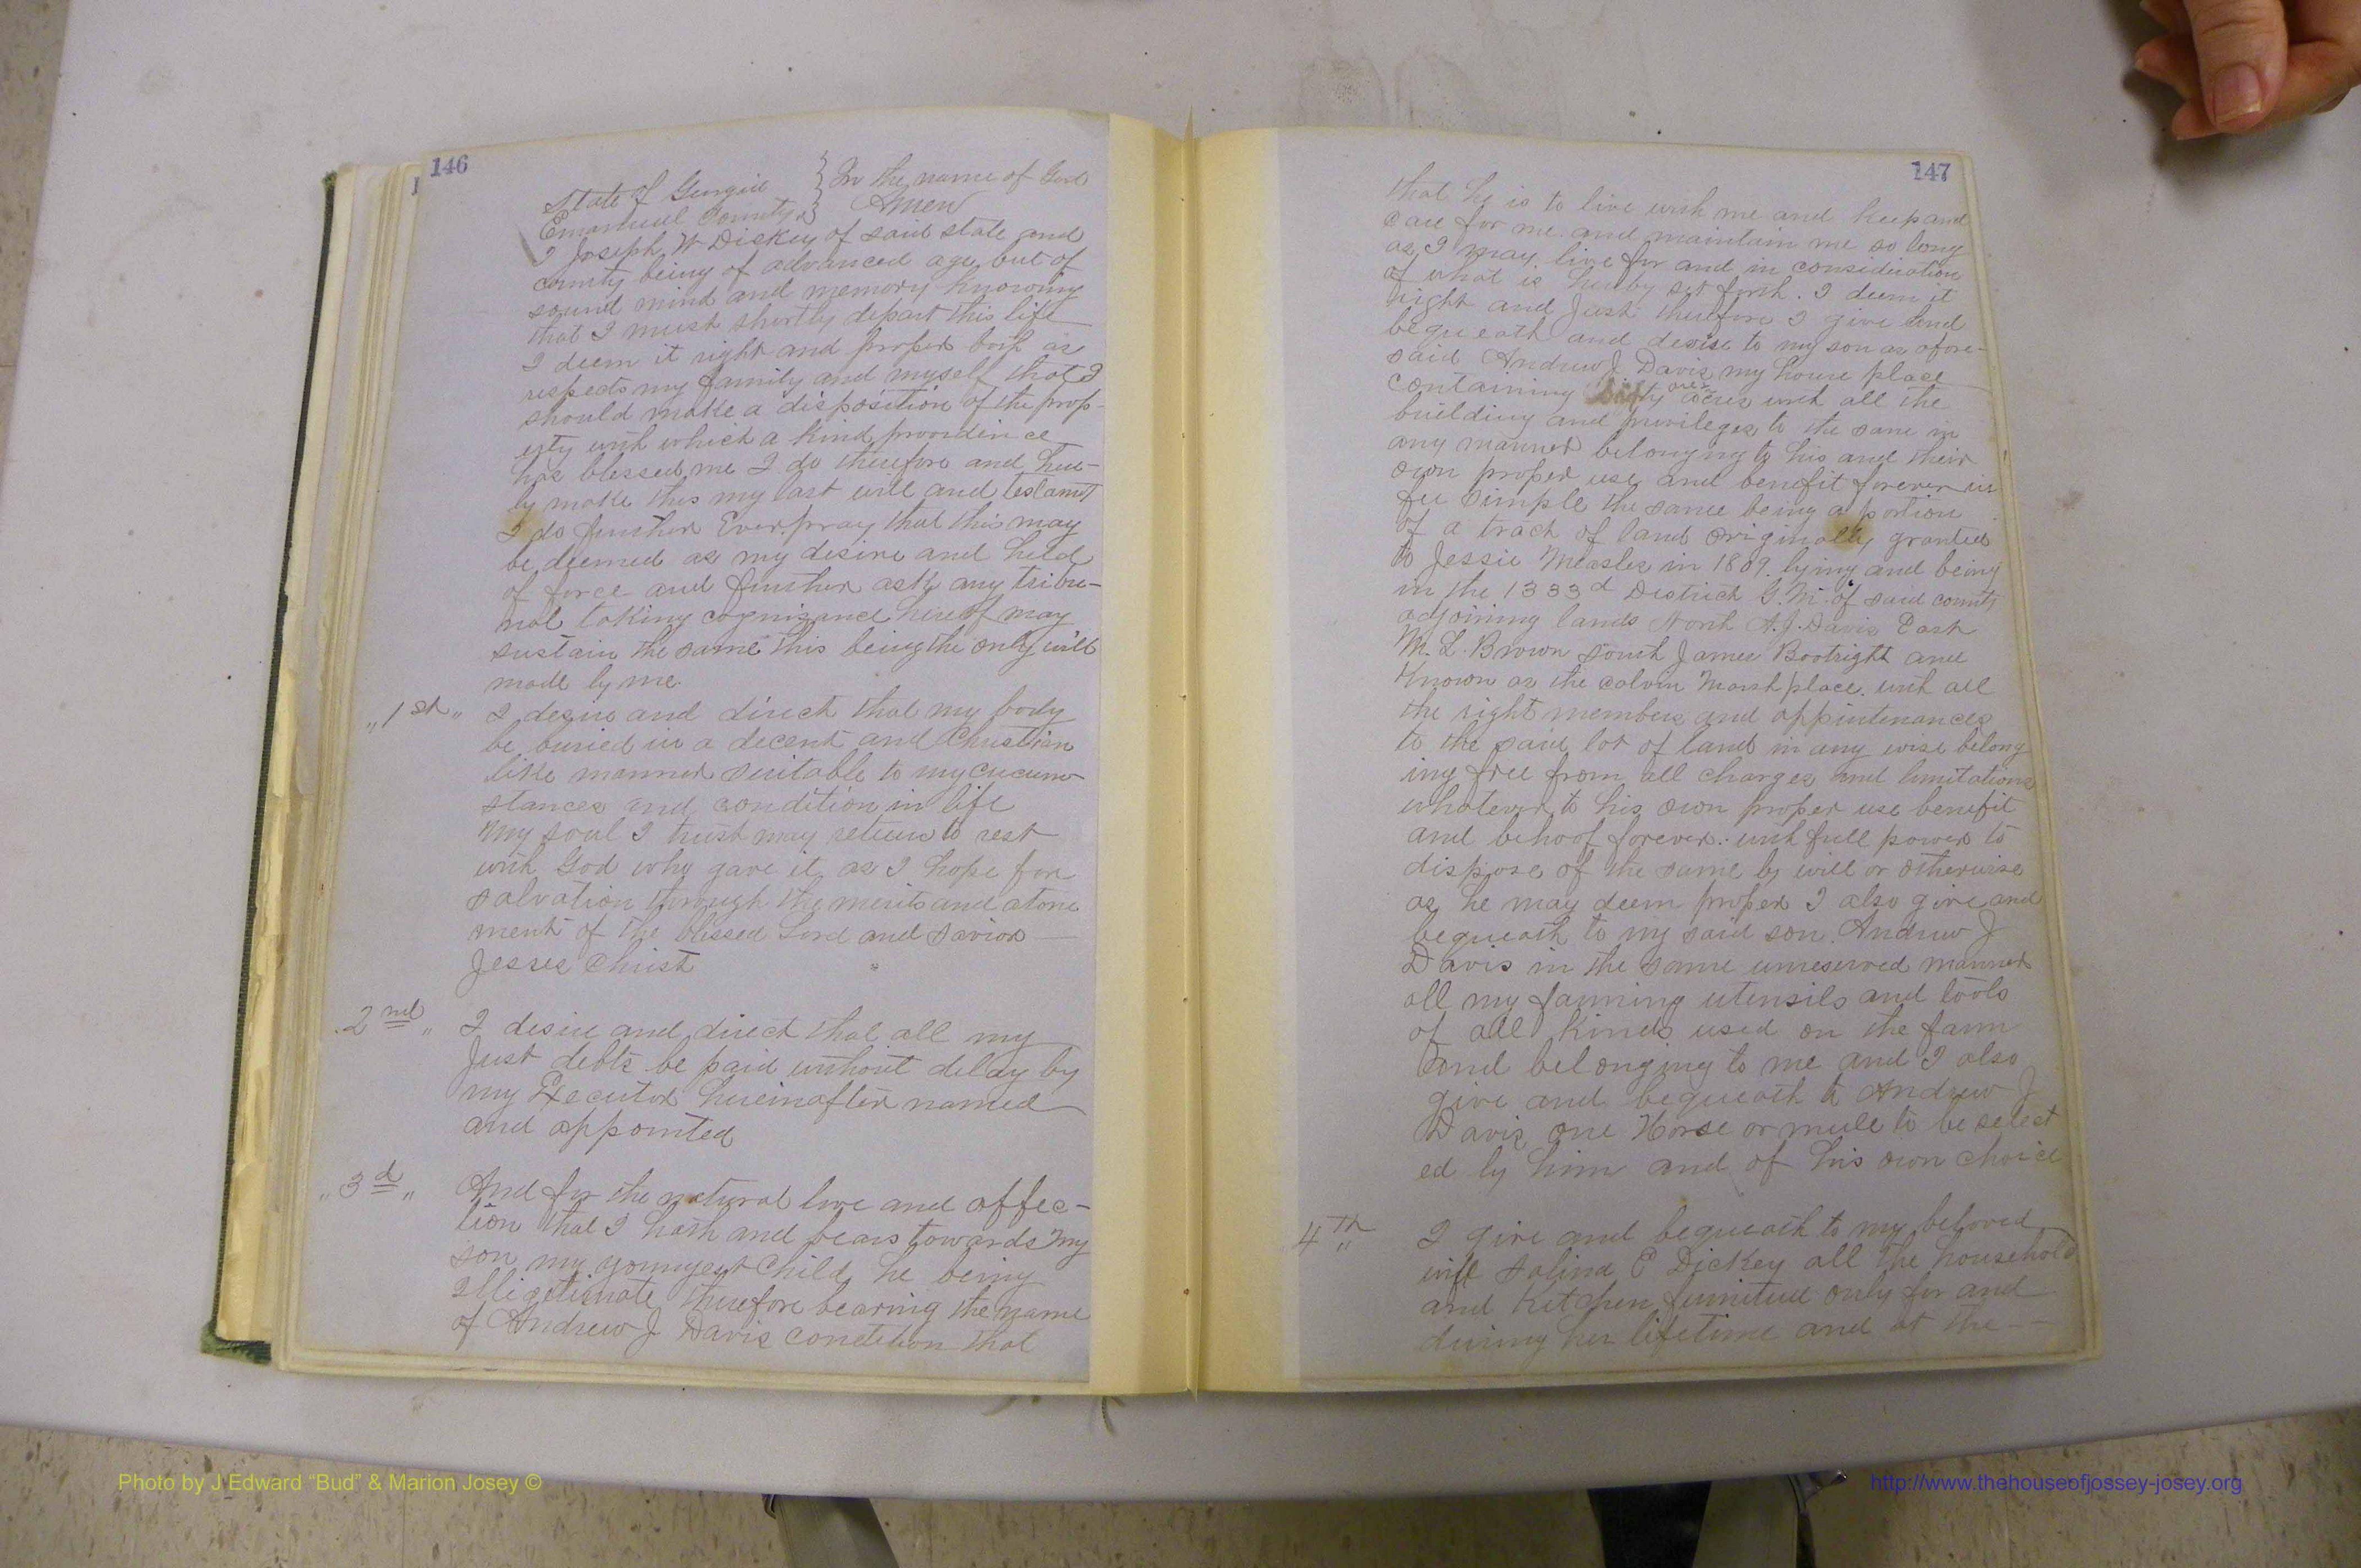 146
State of Georgia } In the name of God
Emanuel County } Amen
I Joseph W Dickey of said state and
county being of advanced age but of
sound mind and memory knowing
that I must shortly depart this life
I deem it right and proper both as
respects my family and myself that I
should make a disposition of the prop-
erty with which a kind providence
has blessed me I do therefore and here-
by make this my last will and testamt
I do further Ever pray that this may
be deemed as my desire and held
of force and further ask any tribu-
nal taking cognizance hereof may
sustain the same this being the only will
made by me.
"1st" I desire and direct that my body
be buried in a decent and Christian
like manner suitable to my circum
stances and condition in life
My soul I trust may return to rest
with God who gave it as I hope for
salvation through the merits and atone
ment of the blessed Lord and savior
Jesses Christ
2nd " I desire and direct that all my
Just debts be paid without delay by
my Executor hereinafter named
and appointed
"3d" And for the natural love and affec-
tion that I hath and bears towards my
son my youngest Child he being
Illigetimate therefore bearing the name
of Andrew J Davis condition that
147
that he is to live with me and keep and
care for me and maintain me so long
as I may live for and in consideration
of what is hereby set forth. I deem it
right and Just therefore I give and
bequeath and desise to my son as afore-
said Andrew J. Davis my house place
containing acres with all the
building and privileges to the same in
any manner belonging to his and their
own proper use and benefit forever in
fee simple the same being a portion
of a tract of land originally granted
to Jessie Measles in 1809. lying and being
in the 1333d District G.M. of said county
adjoining lands North A.J. Davis East
M. L. Brown South James Bootright and
Known as the Calvin Marsh place. with all
the right members and appintenances
to the said lot of land in any wise belong
ing free from all charges and limitations
whatever to his own proper use benefit
and behoof forever. with full power to
dispose of the same by will or otherwise
as he may deem proper I also give and
bequeath to my said son. Andrew J
Davis in the same unreserved manner
all my farming utensils and tools
of all kinds used on the farm
and belonging to me and I also
give and bequeath to Andrew J
Davis one Horse or mule to be select
ed by him and of his own choice
4th " I give and bequeath to my beloved
wife Salina E Dickey all the household
and Kitchen furniture only for and
during her lifetime and at the --
Photo by J Edward “Bud” & Marion Josey ©
http://www.thehouseofjossey-josey.org